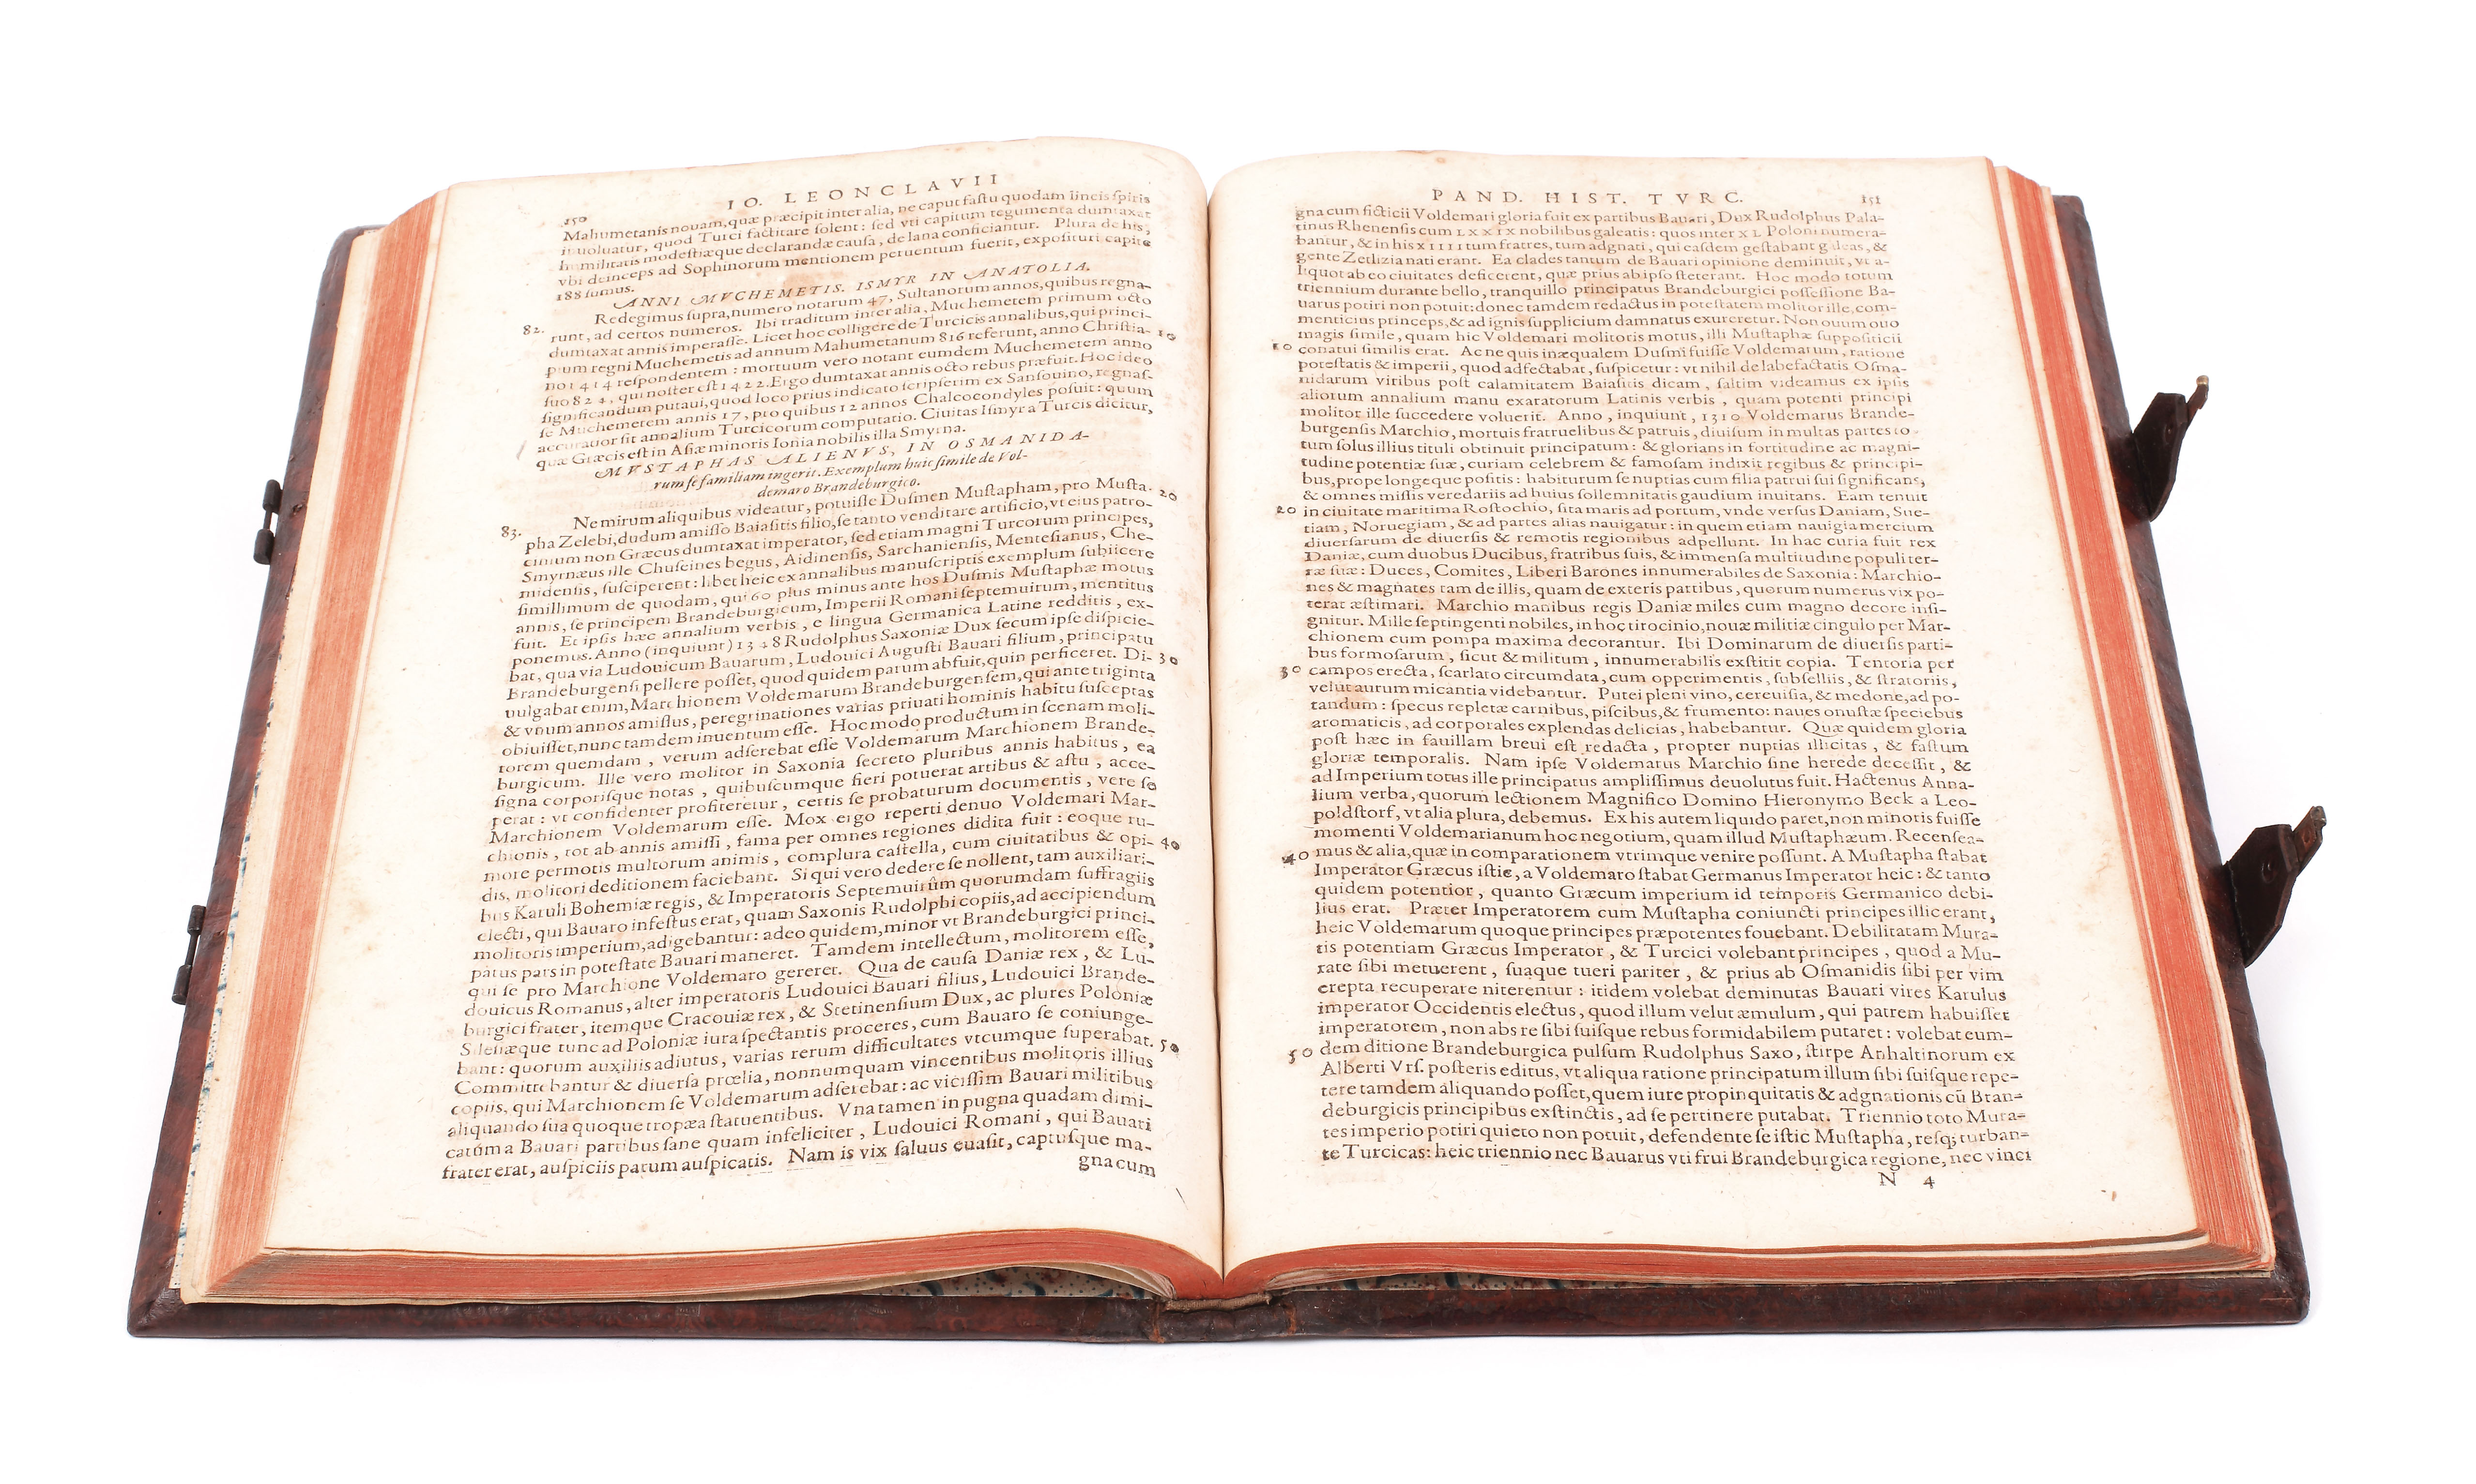 IO. LEONCLAVII
150
Mahumetanis nouam, quæ præcipit inter alia, ne caput fastu quodam lineis spiris
inuoluatur, quod Turci factitare solent: sed vti capitum tegumenta dumtaxat
humilitatis modestiæque declarandæ causa, de lana conficiantur. Plura de his,
vbi deinceps ad Sophinorum mentionem peruentum fuerit, exposituri capite
188 sumus.
ANNI MVCHEMETIS. ISMYR IN ANATOLIA.
82. Redegimus supra, numero notarum 47, Sultanorum annos, quibus regna-
runt, ad certos numeros. Ibi traditum inter alia, Muchemetem primum octo
dumtaxat annis imperasse. Licet hoc colligere de Turcicis annalibus, qui princi- 10
pium regni Muchemetis ad annum Mahumetanum 816 referunt, anno Christia-
no 1414 respondentem: mortuum vero notant eumdem Muchemetem anno
suo 824, qui noster est 1422. Ergo dumtaxat annis octo rebus præfuit. Hoc ideo
significandum putaui, quod loco prius indicato scripserim ex Sansouino, regnas-
se Muchemetem annis 17, pro quibus 12 annos Chalcocondyles posuit: quum
accuratior sit annalium Turcicorum computatio. Ciuitas Ismyr a Turcis dicitur,
quæ Græcis est in Asiæ minoris Ionia nobilis illa Smyrna.
MVSTAPHAS ALIENVS, IN OSMANIDA-
rum se familiam ingerit. Exemplum huic simile de Vol-
demaro Brandeburgico.
83. Ne mirum aliquibus videatur, potuisse Dusmen Mustapham, pro Musta- 20
pha Zelebi, dudum amisso Baiasitis filio, se tanto venditare artificio, vt eius patro-
cinium non Græcus dumtaxat imperator, sed etiam magni Turcorum principes,
Smyrnæus ille Chuseines begus, Aidinensis, Sarchaniensis, Mentesianus, Che-
midensis, susciperent: libet heic ex annalibus manuscriptis exemplum subiicere
simillimum de quodam, qui 60 plus minus ante hos Dusmis Mustaphæ motus
annis, se principem Brandeburgicum, Imperii Romani septemuirum, mentitus
fuit. Et ipsis hæc annalium verbis, e lingua Germanica Latine redditis, ex-
ponemus. Anno (inquiunt) 1348 Rudolphus Saxoniæ Dux secum ipse dispicie-
bat, qua via Ludouicum Bauarum, Ludouici Augusti Bauari filium, principatu
Brandeburgensi pellere posset, quod quidem parum abfuit, quin perficeret. Di- 30
uulgabat enim, Marchionem Voldemarum Brandeburgensem, qui ante triginta
& vnum annos amissus, peregrinationes varias priuati hominis habitu susceptas
obiuisset, nunc tamdem inuentum esse. Hoc modo productum in scenam moli-
torem quemdam, verum adserebat esse Voldemarum Marchionem Brande-
burgicum. Ille vero molitor in Saxonia secreto pluribus annis habitus, ea
signa corporisque notas, quibuscumque fieri potuerat artibus & astu, acce-
perat: vt confidenter profiteretur, certis se probaturum documentis, vere se
Marchionem Voldemarum esse. Mox ergo reperti denuo Voldemari Mar-
chionis, tot ab annis amissi, fama per omnes regiones didita fuit: eoque ru-
more permotis multorum animis, complura castella, cum ciuitatibus & opi- 40
dis, molitori deditionem faciebant. Si qui vero dedere se nollent, tam auxiliari-
bus Karuli Bohemiæ regis, & Imperatoris Septemuirûm quorumdam suffragiis
electi, qui Bauaro infestus erat, quam Saxonis Rudolphi copiis, ad accipiendum
molitoris imperium, adigebantur: adeo quidem, minor vt Brandeburgici princi-
patus pars in potestate Bauari maneret. Tamdem intellectum, molitorem esse,
qui se pro Marchione Voldemaro gereret. Qua de causa Daniæ rex, & Lu-
douicus Romanus, alter imperatoris Ludouici Bauari filius, Ludouici Brande-
burgici frater, itemque Cracouiæ rex, & Stetinensium Dux, ac plures Poloniæ
Silesiæque tunc ad Poloniæ iura spectantis proceres, cum Bauaro se coniunge-
bant: quorum auxiliis adiutus, varias rerum difficultates vtcumque superabat. 50
Committebantur & diuersa prœlia, nonnumquam vincentibus molitoris illius
copiis, qui Marchionem se Voldemarum adserebat: ac vicissim Bauari militibus
aliquando sua quoque tropæa statuentibus. Vna tamen in pugna quadam dimi-
catúm a Bauari partibus sane quam infeliciter, Ludouici Romani, qui Bauari
frater erat, auspiciis parum auspicatis. Nam is vix saluus euasit, captusque ma-
gna cum
PAND. HIST. TVRC. 151
gna cum ficticii Voldemari gloria fuit ex partibus Bauari, Dux Rudolphus Pala-
tinus Rhenensis cum LXXIX nobilibus galeatis: quos inter XL Poloni numera-
bantur, & in his XIIII tum fratres, tum adgnati, qui easdem gestabant galeas, &
gente Zetlizia nati erant. Ea clades tantum de Bauari opinione deminuit, vt a-
liquot ab eo ciuitates deficerent, quæ prius ab ipso steterant. Hoc modo totum
triennium durante bello, tranquillo principatus Brandeburgici possessione Ba-
uarus potiri non potuit: donec tamdem redactus in potestatem molitor ille, com-
menticius princeps, & ad ignis supplicium damnatus exureretur. Non ouum ouo
magis simile, quam hic Voldemari molitoris motus, illi Mustaphæ suppositicii
10 conatui similis erat. Ac ne quis inæqualem Dusmi fuisse Voldemarum, ratione
potestatis & imperii, quod adfectabat, suspicetur: vt nihil de labefactatis Osma-
nidarum viribus post calamitatem Baiasitis dicam, saltim videamus ex ipsis
aliorum annalium manu exaratorum Latinis verbis, quam potenti principi
molitor ille succedere voluerit. Anno, inquiunt, 1310 Voldemarus Brande-
burgensis Marchio, mortuis fratruelibus & patruis, diuisum in multas partes to-
tum solus illius tituli obtinuit principatum: & glorians in fortitudine ac magni-
tudine potentiæ suæ, curiam celebrem & famosam indixit regibus & principi-
bus, prope longeque positis: habiturum se nuptias cum filia patrui sui significans,
& omnes missis veredariis ad huius sollemnitatis gaudium inuitans. Eam tenuit
20 in ciuitate maritima Rostochio, sita maris ad portum, vnde versus Daniam, Sue-
tiam, Noruegiam, & ad partes alias nauigatur: in quem etiam nauigia mercium
diuersarum de diuersis & remotis regionibus adpellunt. In hac curia fuit rex
Daniæ, cum duobus Ducibus, fratribus suis, & immensa multitudine populi ter-
ræ suæ: Duces, Comites, Liberi Barones innumerabiles de Saxonia: Marchio-
nes & magnates tam de illis, quam de exteris partibus, quorum numerus vix po-
terat æstimari. Marchio manibus regis Daniæ miles cum magno decore insi-
gnitur. Mille septingenti nobiles, in hoc tirocinio, nouæ militiæ cingulo per Mar-
chionem cum pompa maxima decorantur. Ibi Dominarum de diuersis parti-
bus formosarum, sicut & militum, innumerabilis exstitit copia. Tentoria per
30 campos erecta, scarlato circumdata, cum opperimentis, subselliis, & stratoriis,
velut aurum micantia videbantur. Putei pleni vino, cereuisia, & medone, ad po-
tandum: specus repletæ carnibus, piscibus, & frumento: naues onustæ speciebus
aromaticis, ad corporales explendas delicias, habebantur. Quæ quidem gloria
post hæc in fauillam breui est redacta, propter nuptias illicitas, & fastum
gloriæ temporalis. Nam ipse Voldematus Marchio sine herede decessit, &
ad Imperium totus ille principatus amplissimus deuolutus fuit. Hactenus Anna-
lium verba, quorum lectionem Magnifico Domino Hieronymo Beck a Leo-
poldstorf, vt alia plura, debemus. Ex his autem liquido paret, non minoris fuisse
momenti Voldemarianum hoc negotium, quam illud Mustaphæum. Recensea-
40 mus & alia, quæ in comparationem vtrimque venire possunt. A Mustapha stabat
Imperator Græcus istic, a Voldemaro stabat Germanus Imperator heic: & tanto
quidem potentior, quanto Græcum imperium id temporis Germanico debi-
lius erat. Præter Imperatorem cum Mustapha coniuncti principes illic erant,
heic Voldemarum quoque principes præpotentes fouebant. Debilitatam Mura-
tis potentiam Græcus Imperator, & Turcici volebant principes, quod a Mu-
rate sibi metuerent, suaque tueri pariter, & prius ab Osmanidis sibi per vim
erepta recuperare niterentur: itidem volebat deminutas Bauari vires Karulus
imperator Occidentis electus, quod illum velut æmulum, qui patrem habuisset
imperatorem, non abs re sibi suisque rebus formidabilem putaret: volebat eum-
50 dem ditione Brandeburgica pulsum Rudolphus Saxo, stirpe Anhaltinorum ex
Alberti Vrs. posteris editus, vt aliqua ratione principatum illum sibi suisque repe-
tere tamdem aliquando posset, quem iure propinquitatis & adgnationis cū Bran-
deburgicis principibus exstinctis, ad se pertinere putabat. Triennio toto Mura-
tes imperio potiri quieto non potuit, defendente se istic Mustapha, resq; turban-
te Turcicas: heic triennio nec Bauarus vti frui Brandeburgica regione, nec vinci
N 4